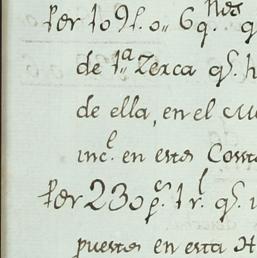 Per 109f. o,, 6q.nes q
de 1.a Zerca qs. h
de ella, en el Mo
incl. en estos Cossto
Per 230 ps. 1 rl. qs. i
puestos en esta H